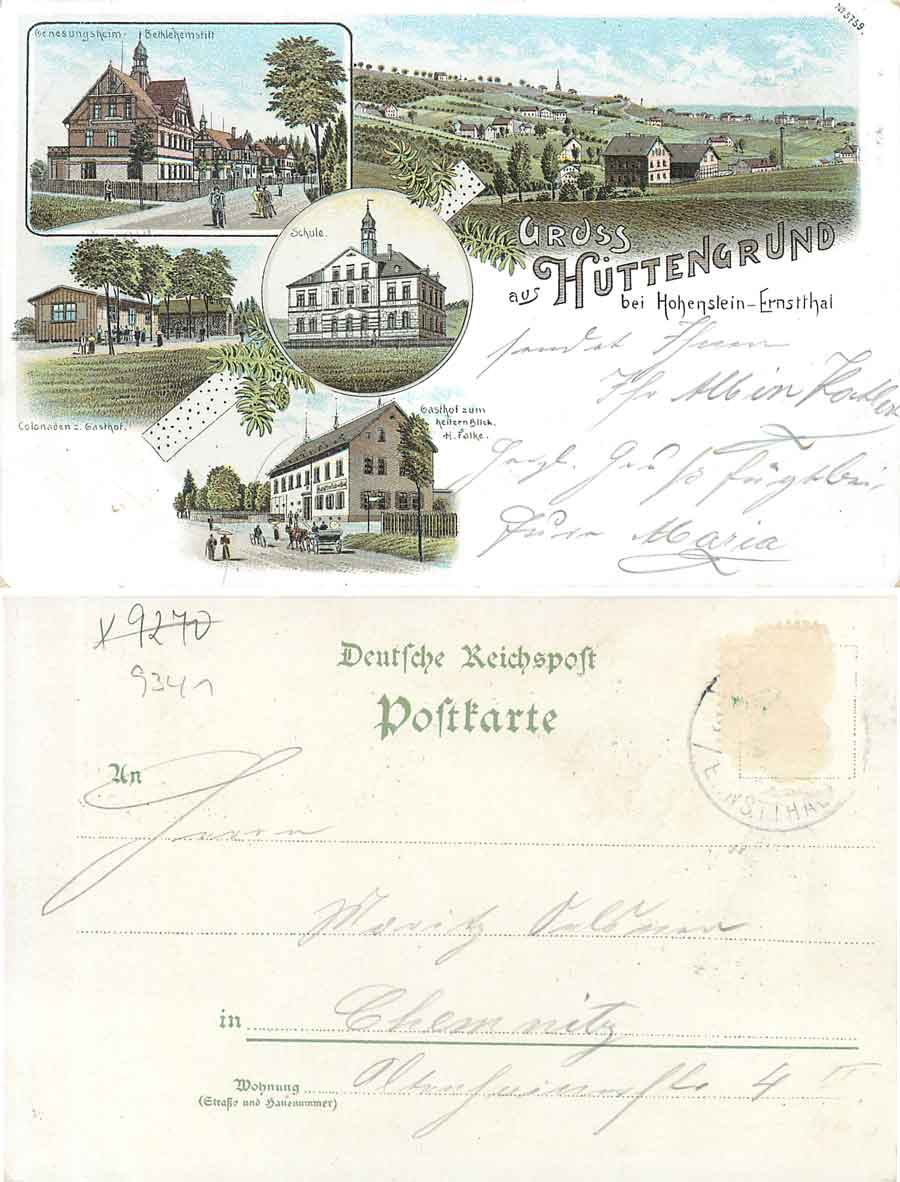 No 5759.
Genesungsheim-Bethlehemstift
Schule.
GRUSS
aus HÜTTENGRUND
bei Hohenstein-Ernstthal
Colonaden z. Gasthof.
Gasthof zum
heitern Blick.
H. Falke.
sendet Ihnen
Ihr Albin
Herzl. Gruß fügt bei
Eure Maria
x 9270
9341
Deutsche Reichspost
Postkarte
An
Herrn
Moritz
in Chemnitz
Wohnung 4 II
(Straße und Hausnummer)